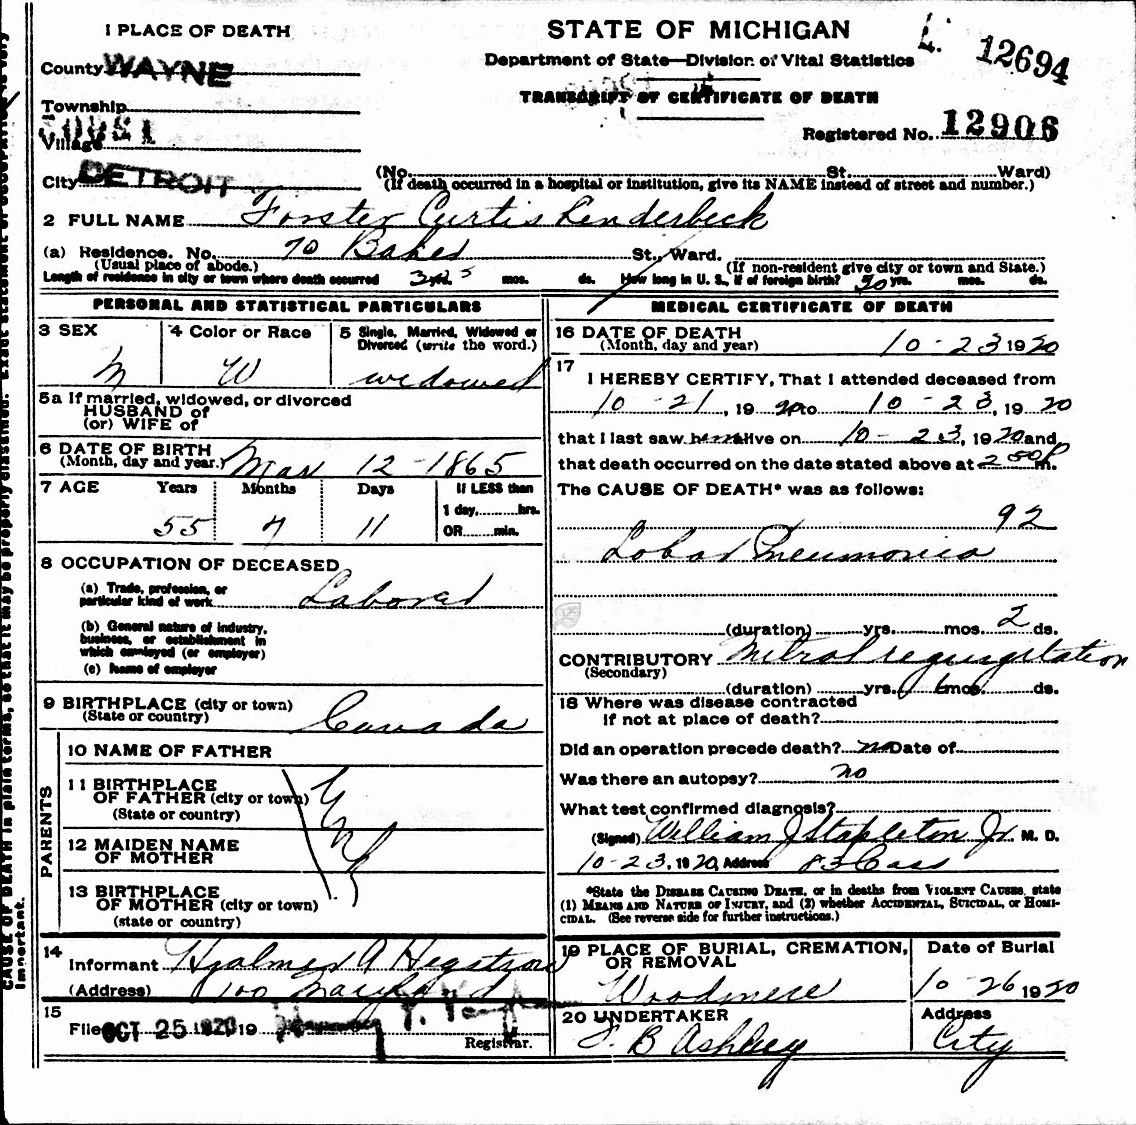 1 PLACE OF DEATH
County WAYNE
Township
Village
City DETROIT
STATE OF MICHIGAN
Department of State—Division of Vital Statistics
TRANSCRIPT OF CERTIFICATE OF DEATH
12694
Registered No. 12906
(No. St. Ward)
(If death occurred in a hospital or institution, give its NAME instead of street and number.)
2 FULL NAME Forster Curtis Lenderbeck
(a) Residence. No. 70 Baker St., Ward.
(Usual place of abode.) (If non-resident give city or town and State.)
Length of residence in city or town where death occurred yrs. mos. ds. How long in U. S., if of foreign birth? yrs. mos. ds.
PERSONAL AND STATISTICAL PARTICULARS
3 SEX 4 Color or Race 5 Single, Married, Widowed or
Divorced (write the word.)
M W widowed
5a If married, widowed, or divorced
HUSBAND of
(or) WIFE of
6 DATE OF BIRTH
(Month, day and year.) Mar 12 - 1865
7 AGE Years Months Days If LESS than
1 day, hrs.
55 7 11 OR min.
8 OCCUPATION OF DECEASED
(a) Trade, profession, or
particular kind of work Laborer
(b) General nature of industry,
business, or establishment in
which employed (or employer)
(c) Name of employer
9 BIRTHPLACE (city or town)
(State or country) Canada
PARENTS
10 NAME OF FATHER
11 BIRTHPLACE
OF FATHER (city or town)
(State or country)
12 MAIDEN NAME
OF MOTHER
13 BIRTHPLACE
OF MOTHER (city or town)
(state or country)
Unk
14
Informant Hjalmer A Hegstrom
(Address) 100 Maryland
15
Filed OCT 25 1920 19
Registrar.
MEDICAL CERTIFICATE OF DEATH
16 DATE OF DEATH
(Month, day and year) 10 - 23 1920
17
I HEREBY CERTIFY, That I attended deceased from
10 - 21, 1920 to 10 - 23, 1920
that I last saw alive on 10 - 23, 1920 and
that death occurred on the date stated above at 2 50 P m.
The CAUSE OF DEATH* was as follows:
92
Lobar Pneumonia
(duration) yrs. mos. 2 ds.
CONTRIBUTORY Mitral regurgitation
(Secondary)
(duration) yrs. 6 mos. ds.
18 Where was disease contracted
if not at place of death?
Did an operation precede death? no Date of
Was there an autopsy? no
What test confirmed diagnosis?
(Signed) William J Stapleton Jr. M. D.
10-23, 1920, Address 83 Cass
*State the DISEASE CAUSING DEATH, or in deaths from VIOLENT CAUSES, state
(1) MEANS AND NATURE OF INJURY, and (2) whether ACCIDENTAL, SUICIDAL, or HOMI-
CIDAL. (See reverse side for further instructions.)
19 PLACE OF BURIAL, CREMATION,
OR REMOVAL
Woodmere
Date of Burial
10-26 1920
20 UNDERTAKER
B Ashley
Address
City
CAUSE OF DEATH in plain terms, so that it may be properly classified. Exact statement of OCCUPATION is very
important.